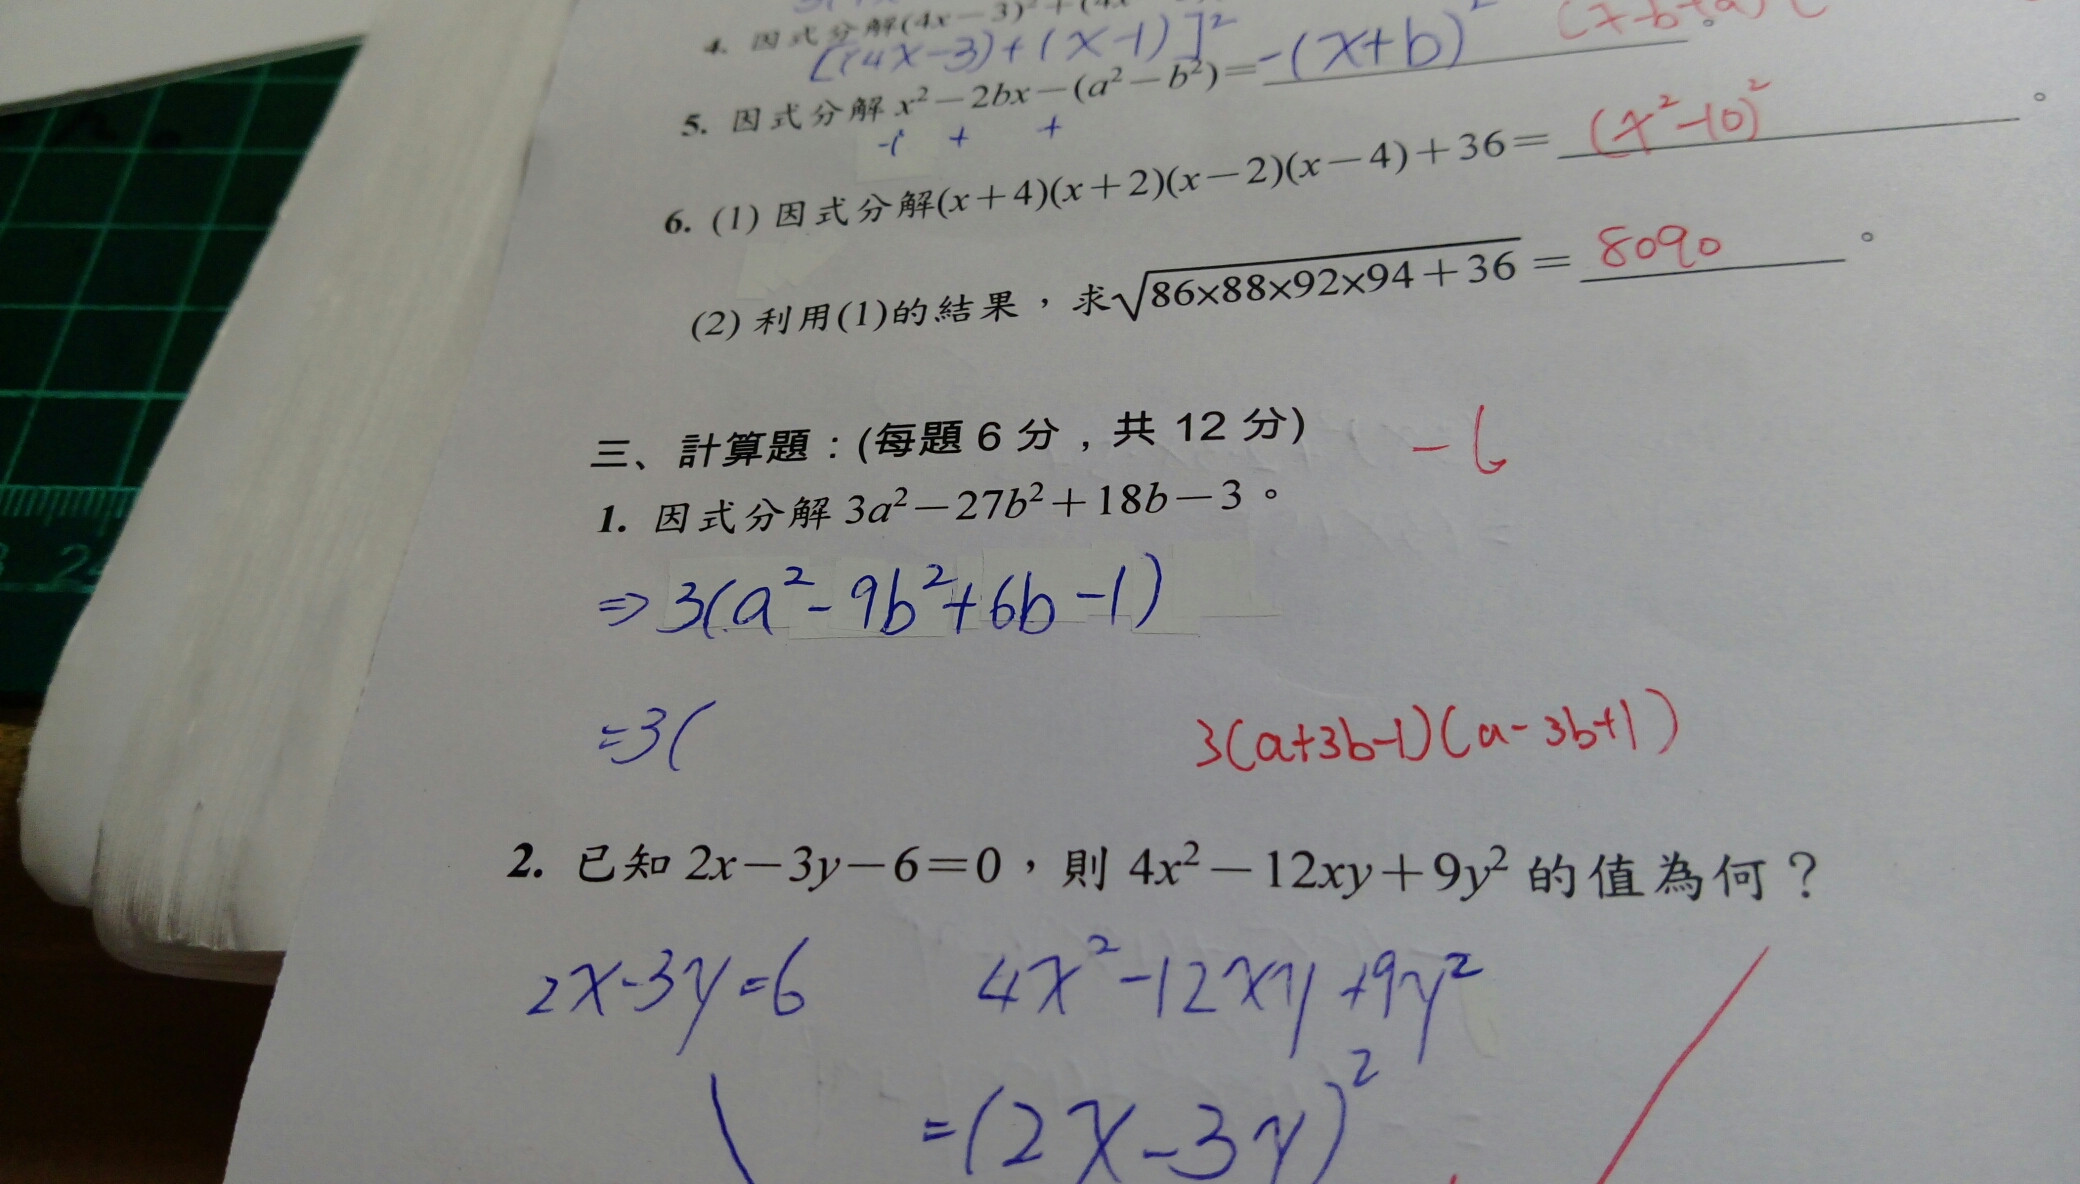 4. 因式分解(4x-3)²+(4x
[(4x-3)+(x-1)]²
5. 因式分解 x²-2bx-(a²-b²)=-(x+b)²
-1 + +
6. (1) 因式分解(x+4)(x+2)(x-2)(x-4)+36= (x²-10)² 。
(2) 利用(1)的結果，求√86×88×92×94+36 = 8090 。
三、計算題：(每題 6 分，共 12 分) -6
1. 因式分解 3a²-27b²+18b-3。
⇒3(a²-9b²+6b-1)
=3( 3(a+3b-1)(a-3b+1)
2. 已知 2x-3y-6=0，則 4x²-12xy+9y² 的值為何？
2x-3y=6 4x²-12xy+9y²
=(2x-3y)²